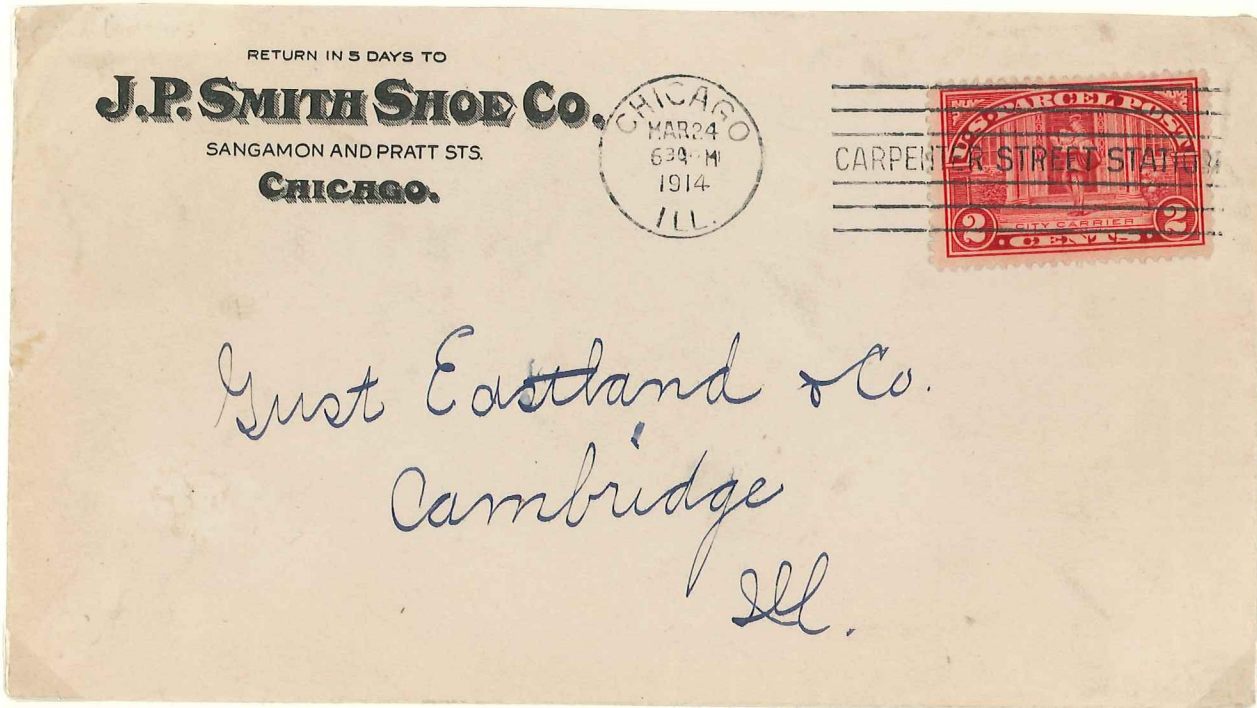 RETURN IN 5 DAYS TO
J.P. SMITH SHOE CO.
SANGAMON AND PRATT STS.
CHICAGO.
CHICAGO
MAR 24
1914
ILL.
CARPENTER STREET STATION
U.S. PARCEL POST
2 CITY CARRIER 2
CENTS
Gust Eastland & Co.
Cambridge
Ill.